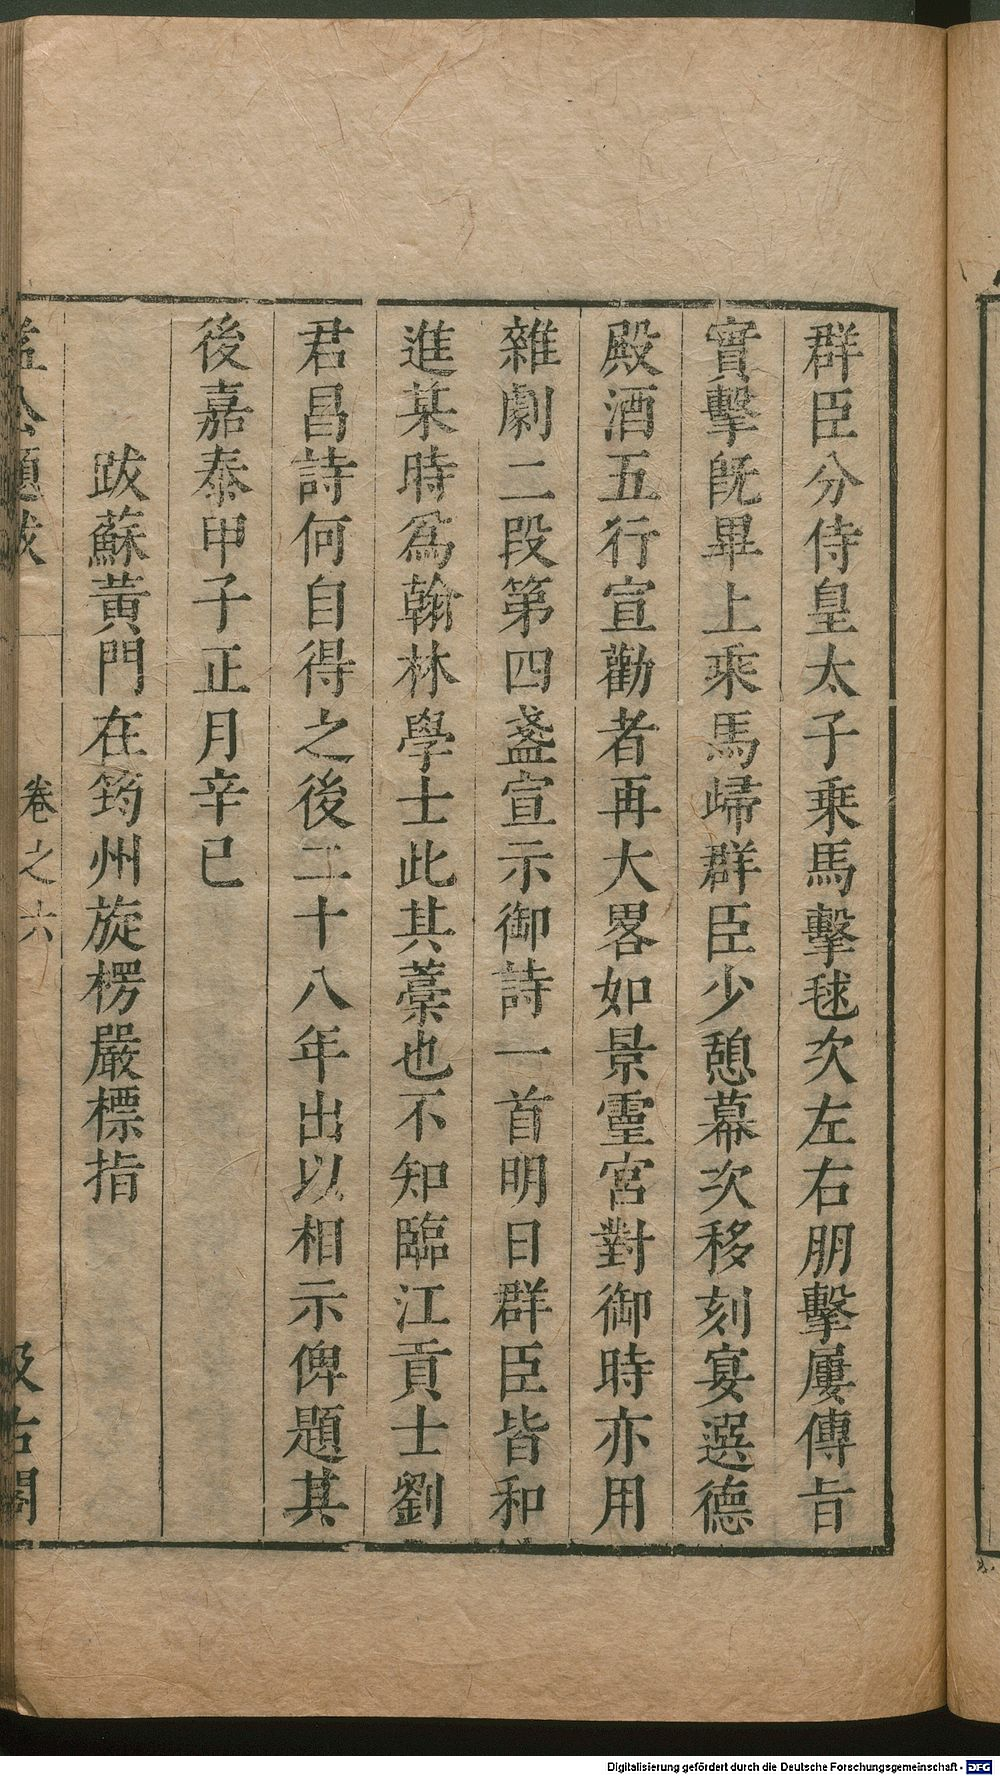 群臣分侍皇太子乗馬擊毬次左右朋擊屢傳旨
實擊旣畢上乘馬歸群臣少憩幕次移刻宴選德
殿酒五行宣勸者再大畧如景靈宮對御時亦用
雜劇二段第四盞宣示御詩一首明日群臣皆和
進某時爲翰林學士此其藁也不知臨江貢士劉
君昌詩何自得之後二十八年出以相示俾題其
後嘉泰甲子正月辛巳
跋蘇黃門在筠州旋楞嚴標指
益公題跋 卷之六 汲古閣
Digitalisierung gefördert durch die Deutsche Forschungsgemeinschaft - DFG